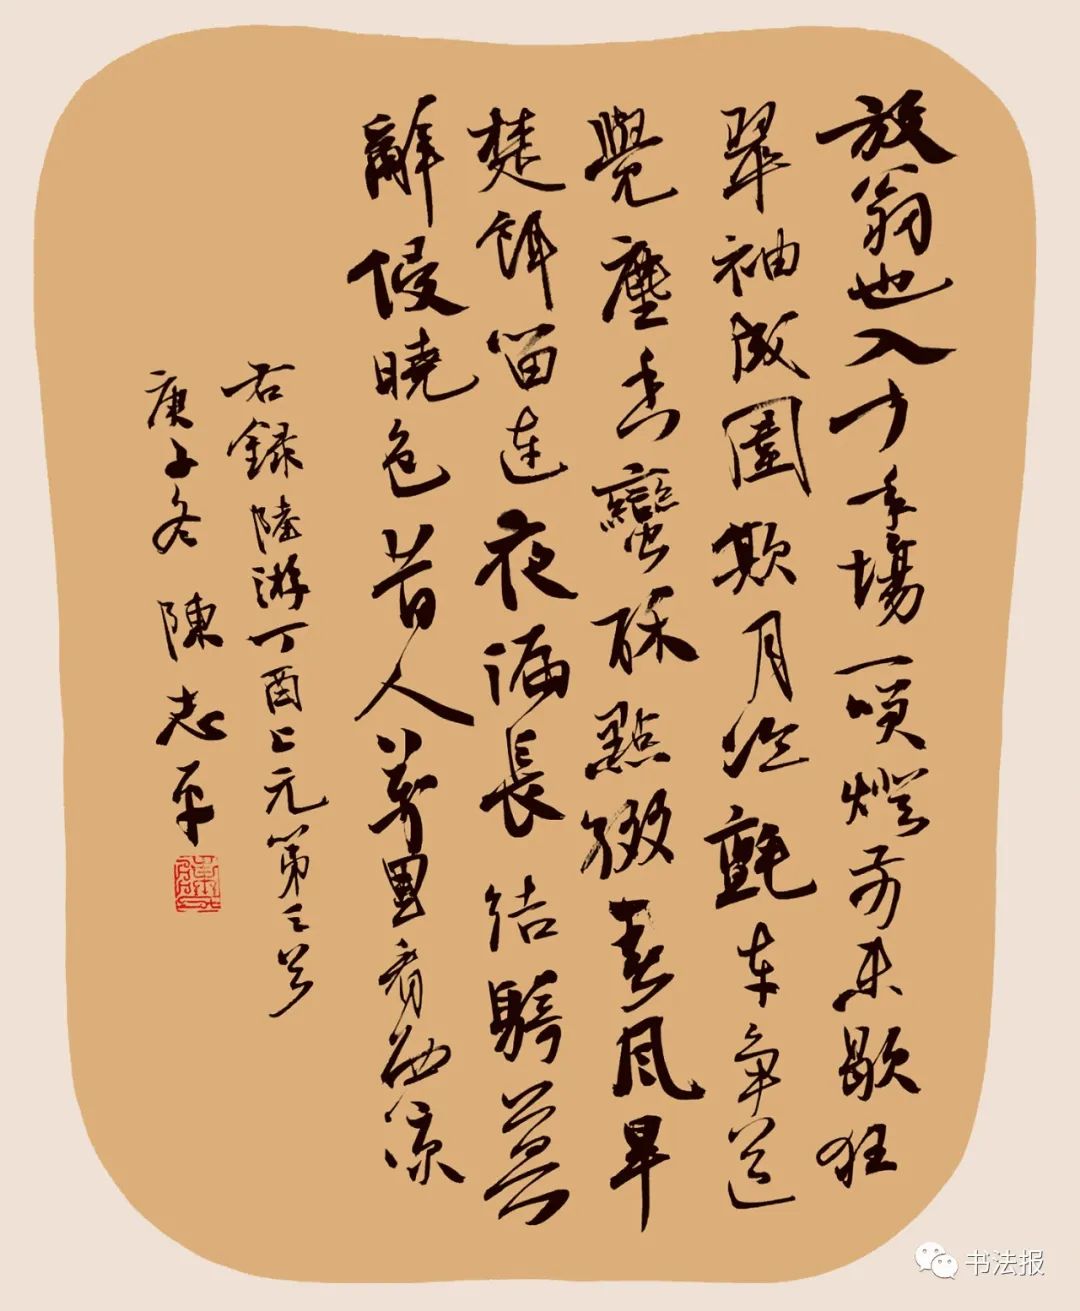 放翁也入少年場一咲燈前未歇狂
翠袖成圍欺月冷氈車爭道
覺塵香蠻酥點綴春風早
楚餌留連夜漏長結騎莫
辭侵曉色昔人萬里看西涼
右録陸游丁酉上元第三首
庚子冬陳志平
书法报